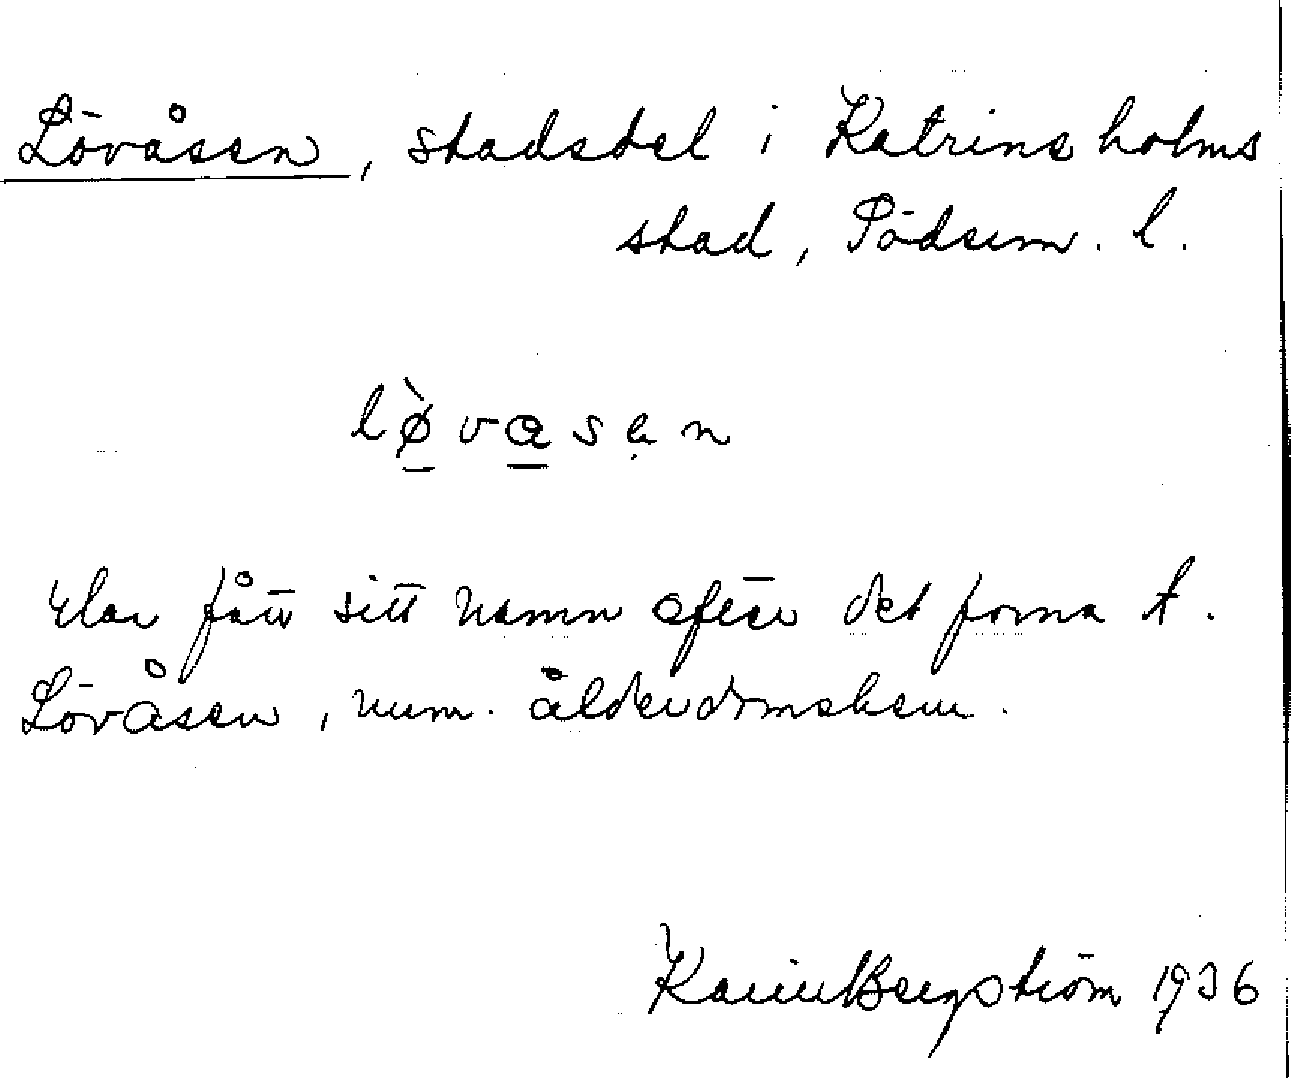 Lövåsen, stadsdel i Katrineholms
stad, Södserm. l.
lø̀vasen
Har fått sitt namn efter det forna t.
Lövåsen, num. ålderdomshem.
Karin Bergström 1936